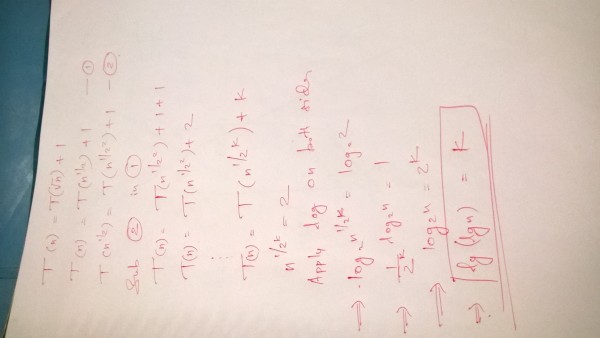 T(n) = T(√n) + 1
T(n) = T(n^1/2) + 1 — ①
T(n^1/2) = T(n^1/2²) + 1 — ②
Sub ② in ①
T(n) = T(n^1/2²) + 1 + 1
T(n) = T(n^1/2²) + 2
⋮
T(n) = T(n^1/2^k) + k
n^1/2^k = 2
Apply log on both sides
⇒ log₂ n^1/2^k = log₂ 2
⇒ 1/2^k log₂ n = 1
⇒ log₂ n = 2^k
⇒ lg(lg n) = k